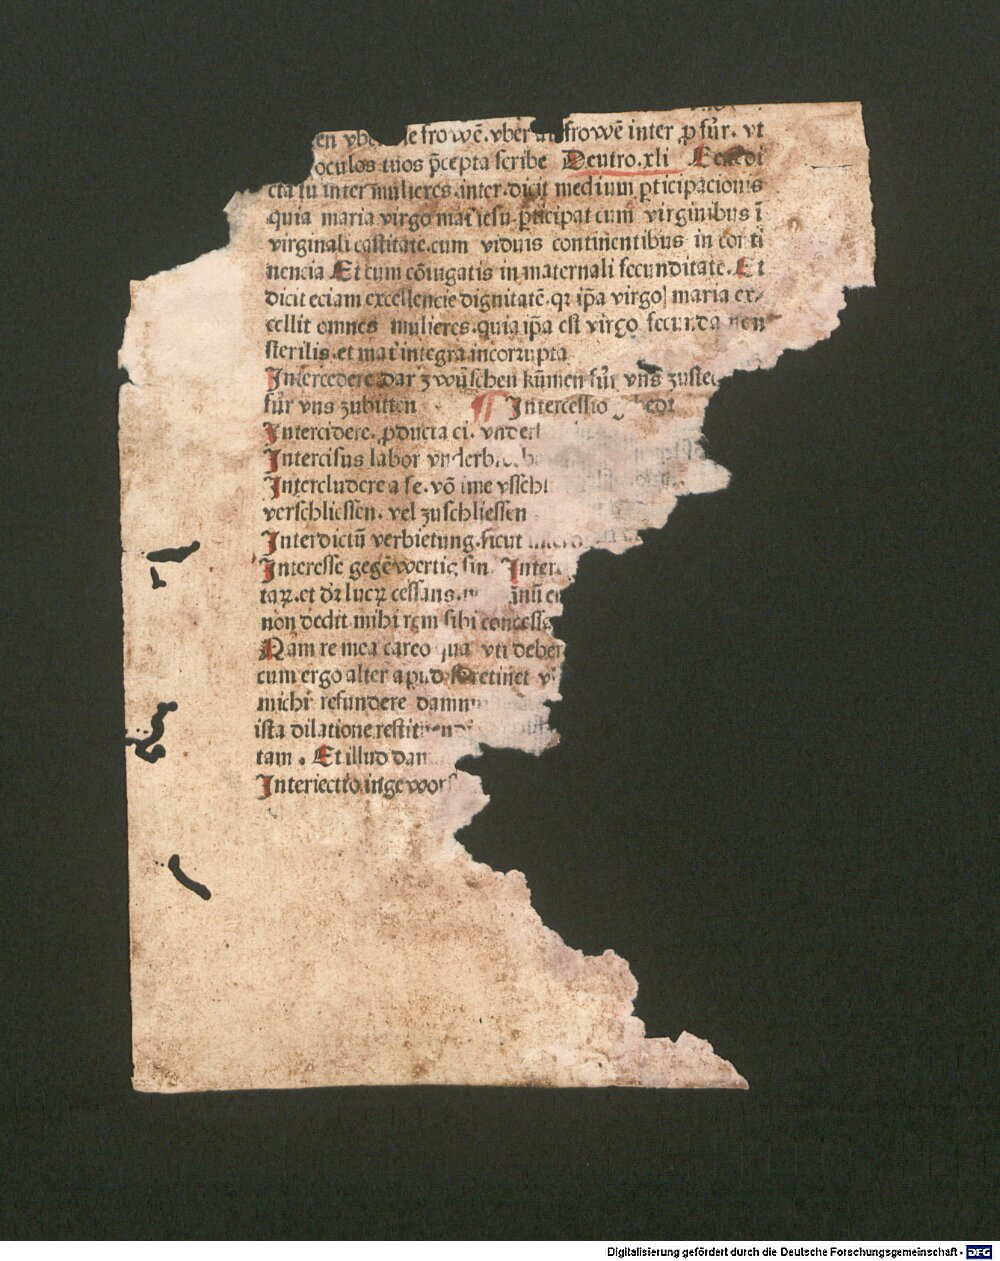 frowē inter ꝓ für. vt
oculos tuos p̄cepta scribe Deutro.xli Benedi
cta tu inter mulieres.inter.dicit medium ꝑticipacionis
quia maria virgo mat̓ iesu.ꝑticipat cum virginibus ī
virginali castitate.cum viduis continentibus in conti
nencia Et cum cōiugatis in maternali fecunditate.Et
dicit eciam excellencie dignitatē.qꝛ ip̄a virgo maria ex⸗
cellit omnes mulieres.quia ip̄a est virgo fecunda non
sterilis.et mat̓ integra incorrupta
Intercedere dar zwüschen kūmen für vns zuste
für vns zubitten ¶ Intercessio
Intercidere. ꝓducta ci.
Intercisus labor
Intercludere a se.vō ime
verschliessen. vel zuschliessen
Interdictū verbietung.sicut
Interesse gegēwertig sin
cessans.
non dedit mihi rem sibi concess
Nam re mea careo qua vti debe
cum ergo alter apud se retinet
michi refundere
ista dilatione
tam . Et illud
Interiectio ingewor
Digitalisierung gefördert durch die Deutsche Forschungsgemeinschaft - DFG